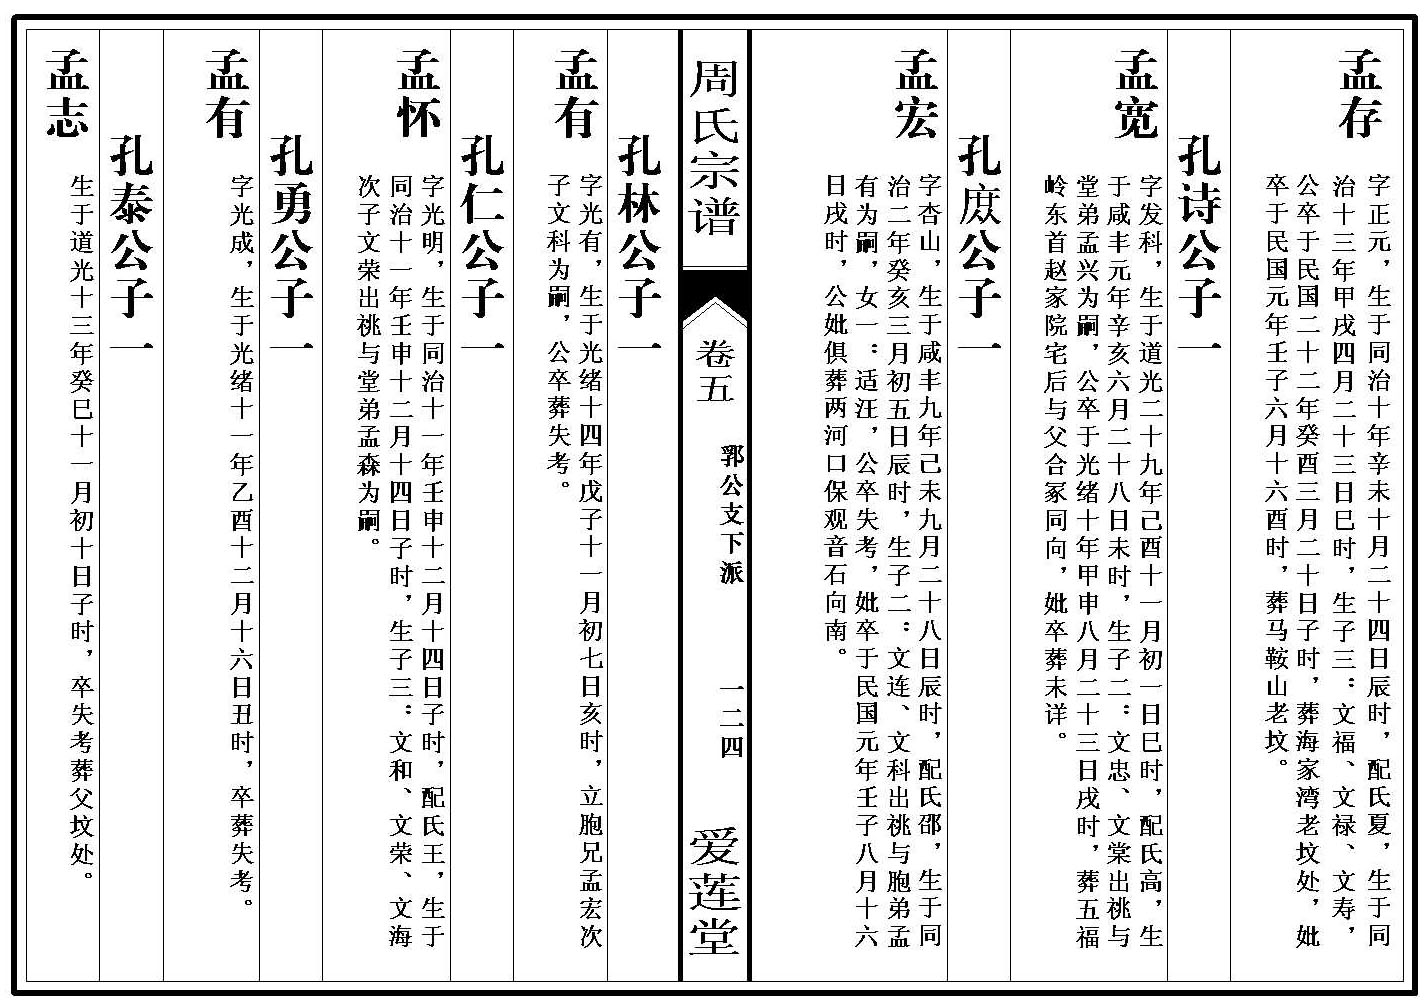 孟存
字正元，生于同治十年辛未十月二十四日辰时，配氏夏，生于同
治十三年甲戌四月二十三日巳时，生子三：文福、文禄、文寿，
公卒于民国二十二年癸酉三月二十日子时，葬海家湾老坟处，妣
卒于民国元年壬子六月十六酉时，葬马鞍山老坟。
孔诗公子一
孟宽
字发科，生于道光二十九年己酉十一月初一日巳时，配氏高，生
于咸丰元年辛亥六月二十八日未时，生子二：文忠、文棠出祧与
堂弟孟兴为嗣，公卒于光绪十年甲申八月二十三日戌时，葬五福
岭东首赵家院宅后与父合冢同向，妣卒葬未详。
孔庶公子一
孟宏
字杏山，生于咸丰九年己未九月二十八日辰时，配氏邵，生于同
治二年癸亥三月初五日辰时，生子二：文连、文科出祧与胞弟孟
有为嗣，女一：适汪，公卒失考，妣卒于民国元年壬子八月十六
日戌时，公妣俱葬两河口保观音石向南。
周氏宗谱
卷五
郛公支下派
一二四
爱莲堂
孔林公子一
孟有
字光有，生于光绪十四年戊子十一月初七日亥时，立胞兄孟宏次
子文科为嗣，公卒葬失考。
孔仁公子一
孟怀
字光明，生于同治十一年壬申十二月十四日子时，配氏王，生于
同治十一年壬申十二月十四日子时，生子三：文和、文荣、文海
次子文荣出祧与堂弟孟森为嗣。
孔勇公子一
孟有
字光成，生于光绪十一年乙酉十二月十六日丑时，卒葬失考。
孔泰公子一
孟志
生于道光十三年癸巳十一月初十日子时，卒失考葬父坟处。